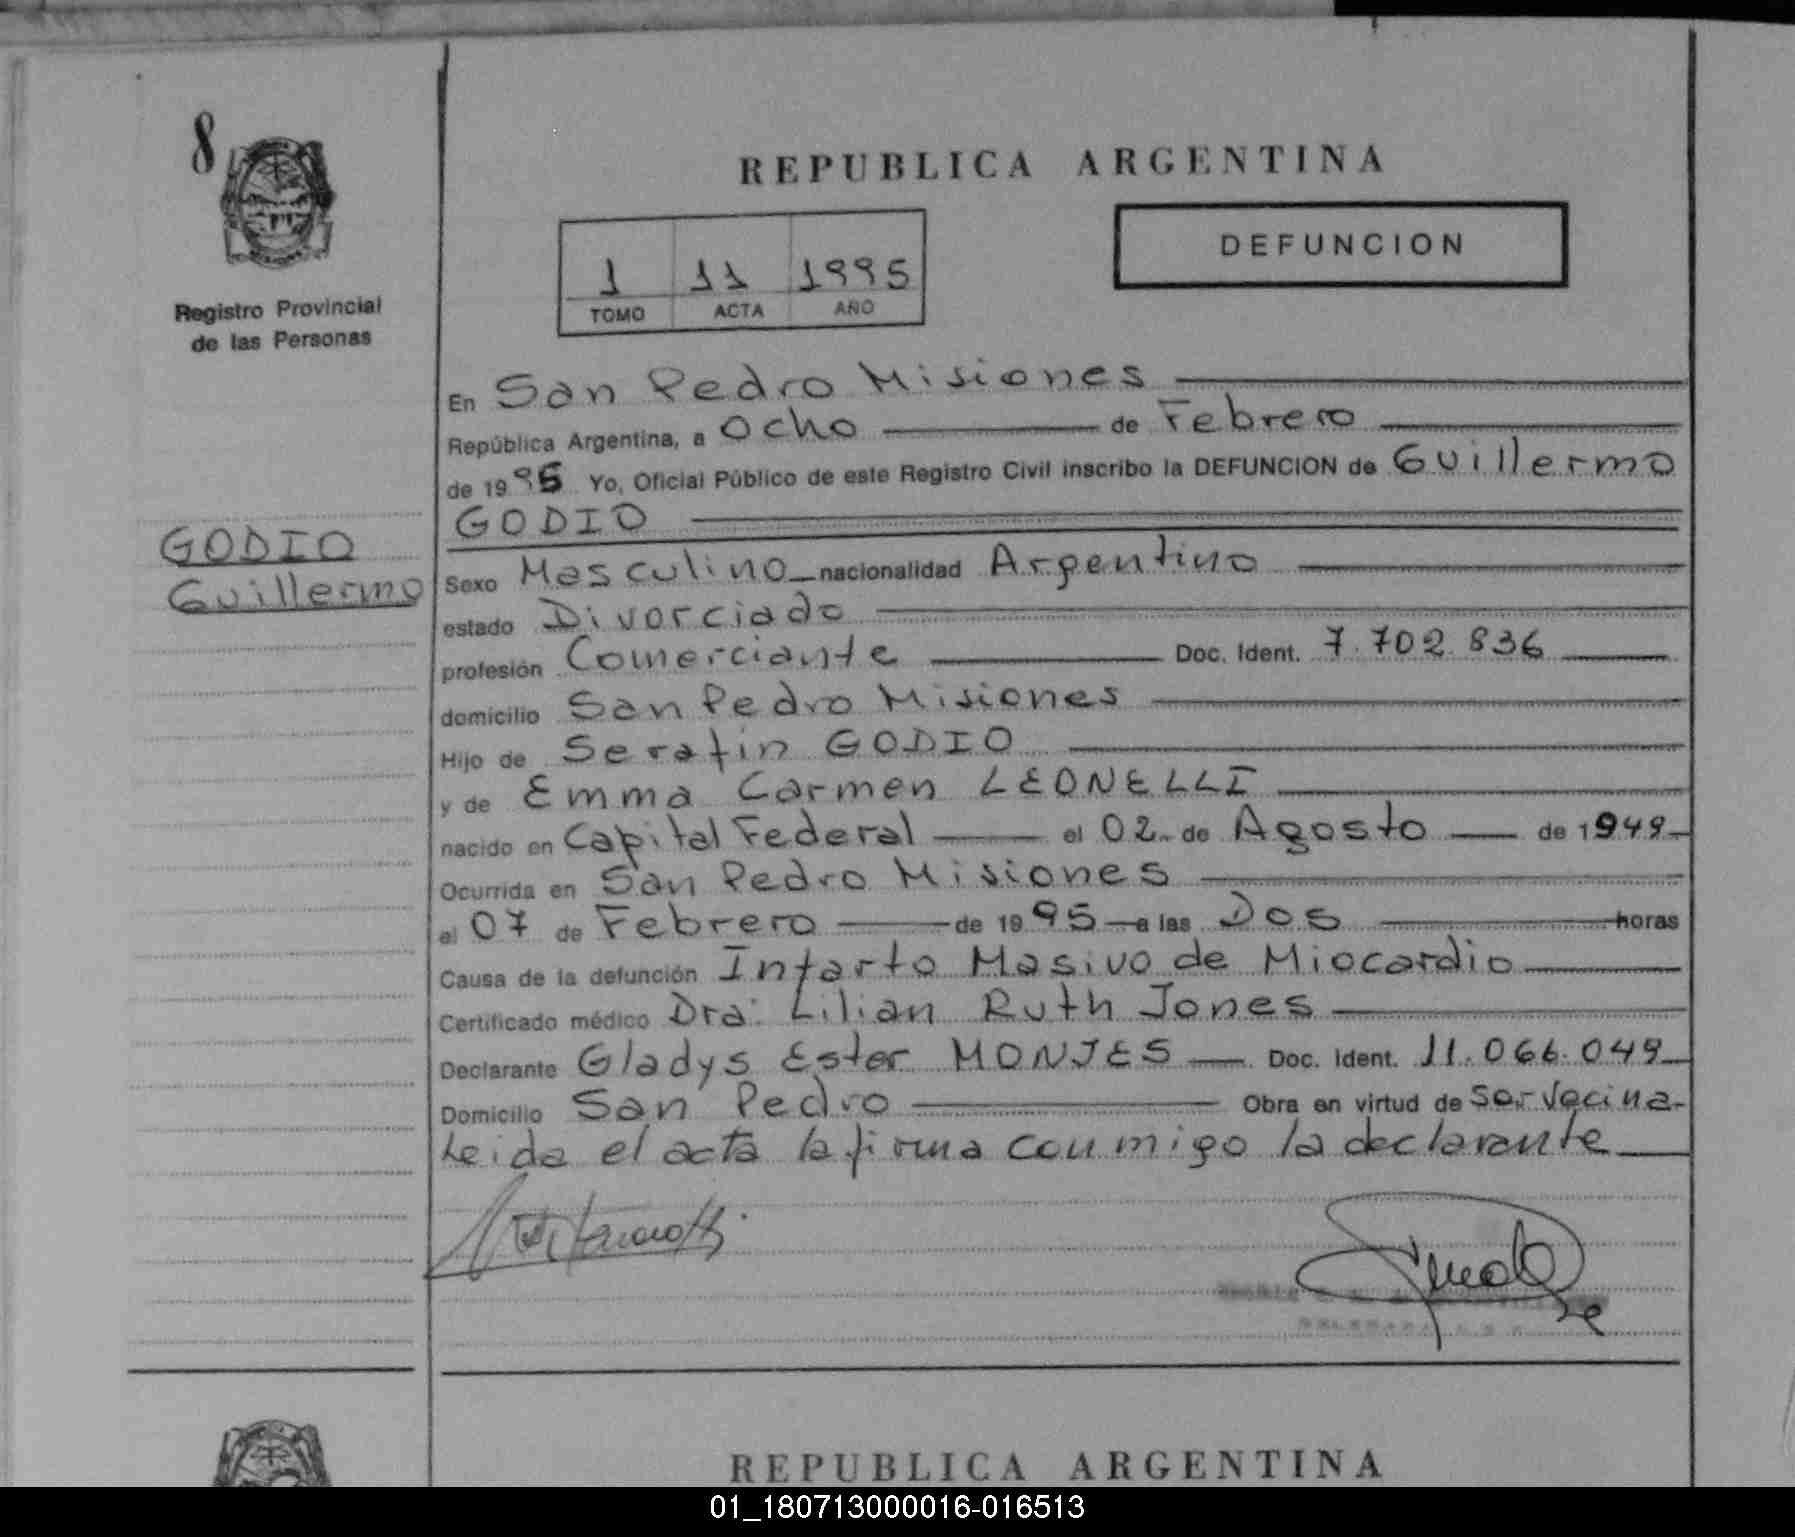 8
Registro Provincial
de las Personas
REPUBLICA ARGENTINA
DEFUNCION
1 11 1995
TOMO ACTA AÑO
En San Pedro Misiones
República Argentina, a Ocho de Febrero
de 1995 Yo, Oficial Público de este Registro Civil inscribo la DEFUNCION de Guillermo
GODIO
GODIO
Guillermo
Sexo Masculino nacionalidad Argentino
estado Divorciado
profesión Comerciante Doc. Ident. 7.702.836
domicilio San Pedro Misiones
Hijo de Serafin GODIO
y de Emma Carmen LEONELLI
nacido en Capital Federal el 02 de Agosto de 1949
Ocurrida en San Pedro Misiones
el 07 de Febrero de 1995 a las Dos horas
Causa de la defunción Infarto Masivo de Miocardio
Certificado médico Dra: Lilian Ruth Jones
Declarante Gladys Ester MONJES Doc. Ident. 11.066.049
Domicilio San Pedro Obra en virtud de ser vecina.
Leida el acta la firma conmigo la declarante
REPUBLICA ARGENTINA
01_180713000016-016513